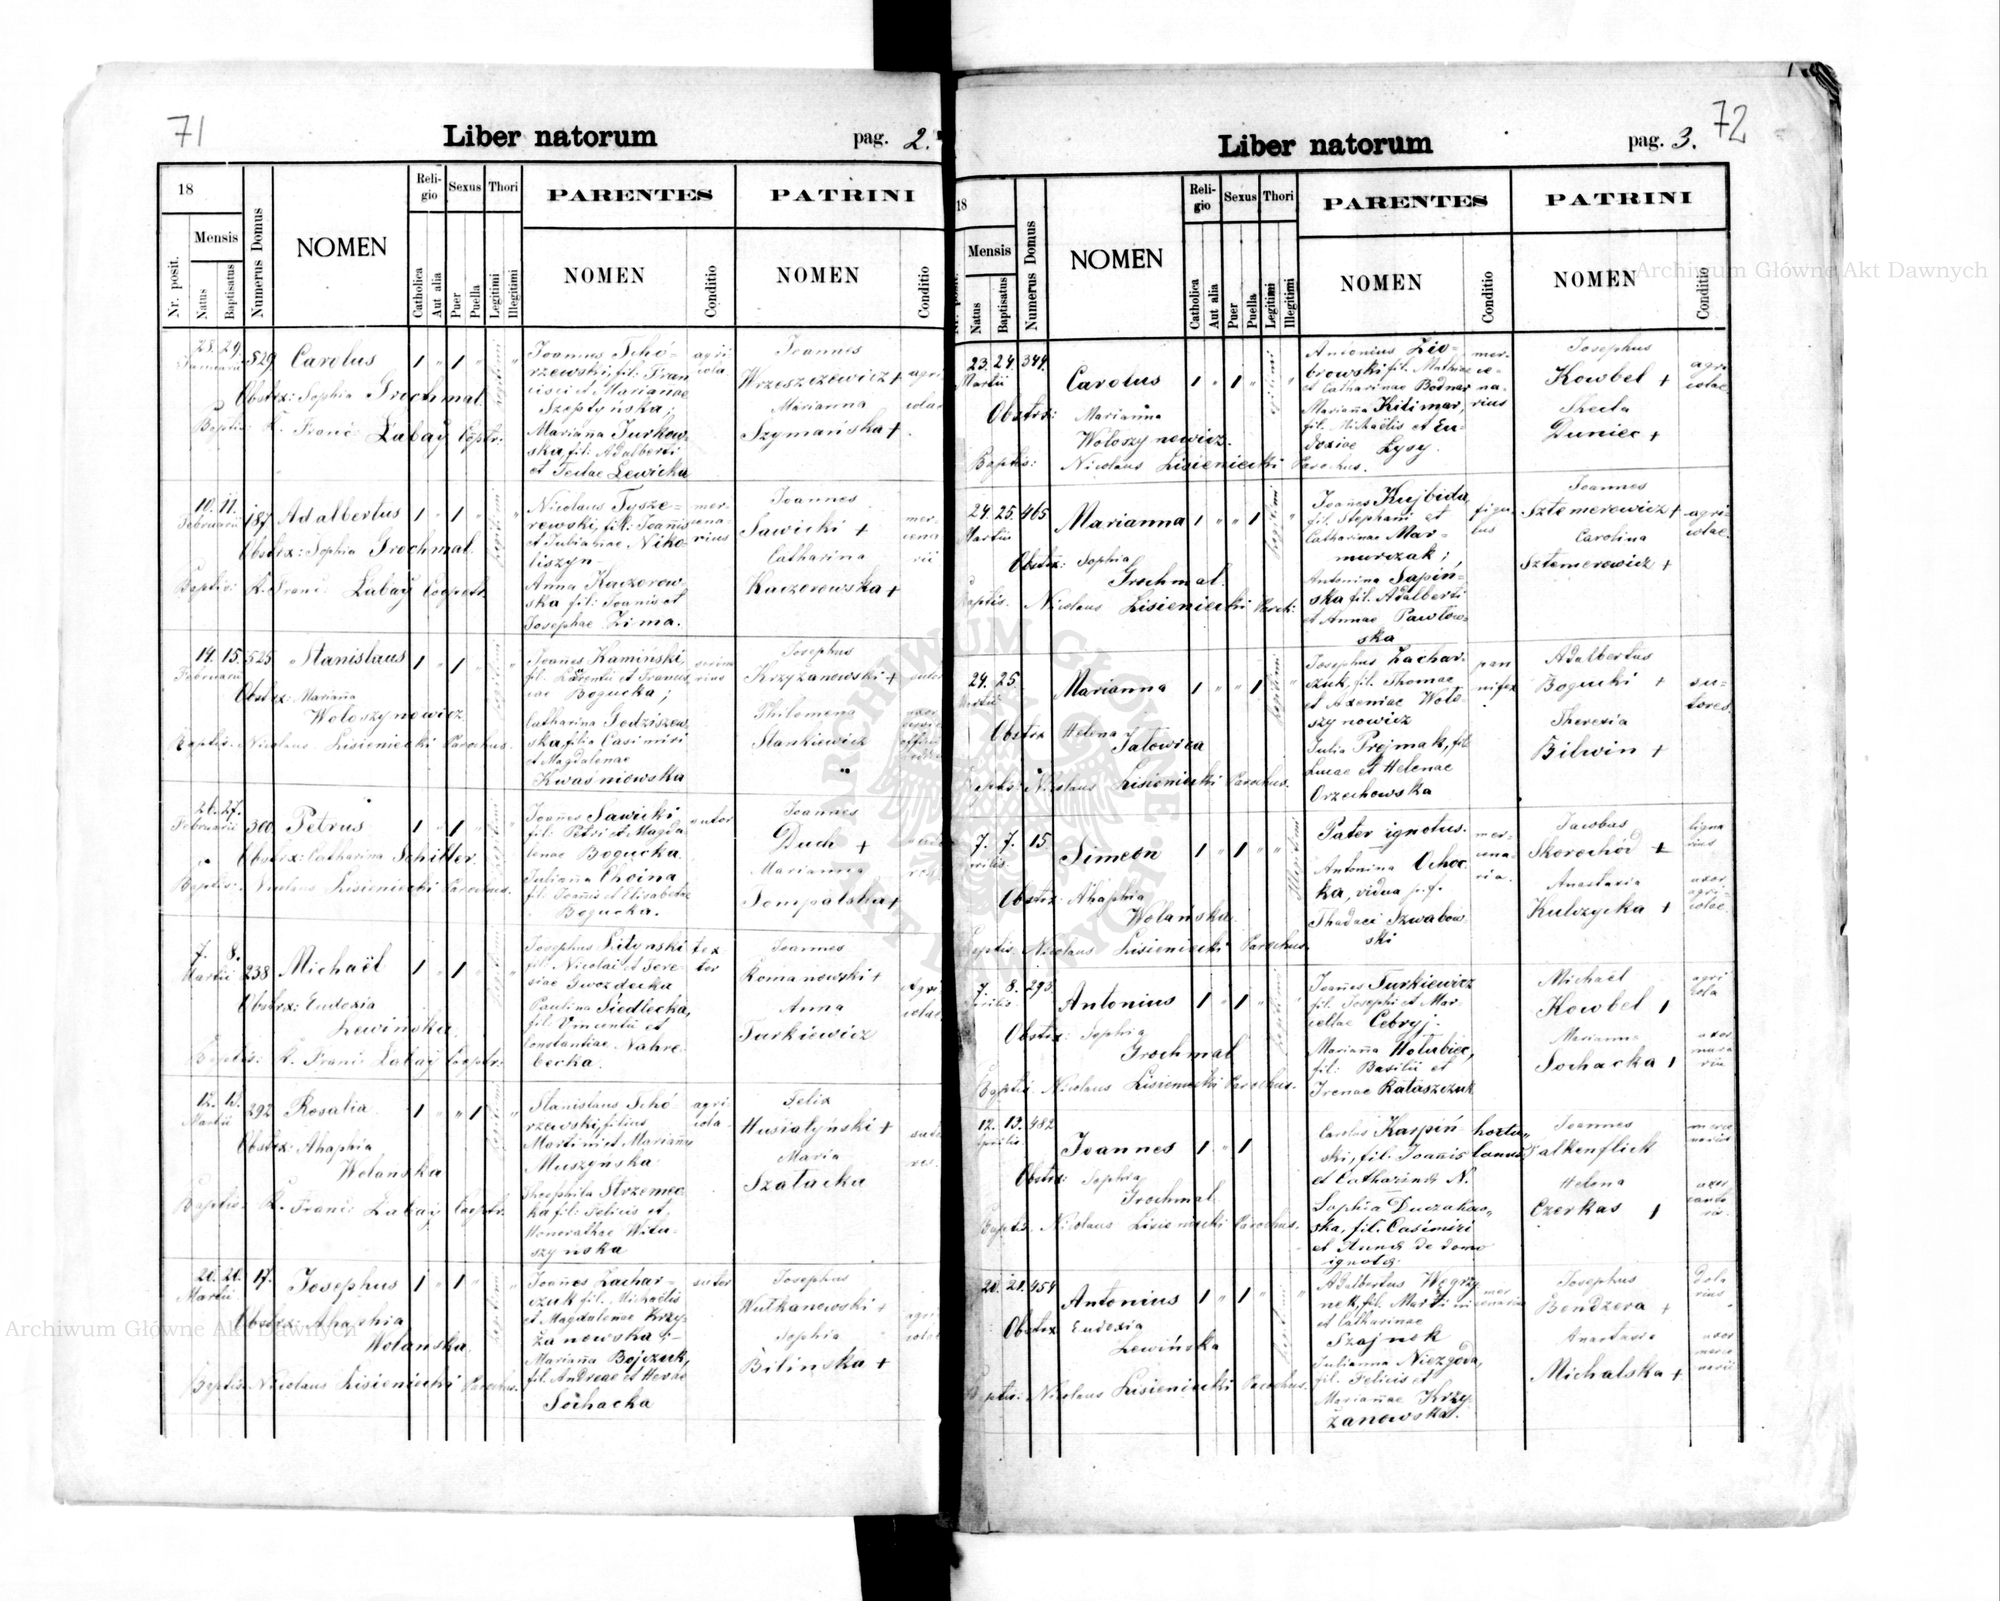 71
Liber natorum
pag. 2.
18
Mensis
Nr. posit.
Natus
Baptisatus
Numerus Domus
NOMEN
Religio
Catholica
Aut alia
Sexus
Puer
Puella
Thori
Legitimi
Illegitimi
PARENTES
NOMEN
Conditio
PATRINI
NOMEN
Conditio
28. 29. 529 Carolus 1 " 1 "
Januarii
Obstrx: Sophia Grochmal
Baptis: X. Franc: Łabay Cooptr.
Joannes Schó-
rzewski, fil. Fran
cisci et Marianae
Szeptyńska;
Marianna Turkow-
ska, fil: Adalberti
et Teclae Lewicka
agri
cola
Joannes
Wrzeszczewicz +
Marianna
Szymańska +
10. 11. 187 Adalbertus 1 " 1 "
Februarii
Obstrx: Sophia Grochmal
Baptis: X. Franc: Łabay Cooptr.
Nicolaus Tysze-
rewski, fil. Joannis
et Julianae Niko-
liszyn
Anna Kaczorow-
ska fil: Joannis et
Josephae Zima.
mer-
cena-
rius
Joannes
Sawicki +
Catharina
Kaczorowska +
mer-
cena
rii
14. 15. 525 Stanislaus 1 " 1 "
Februarii
Obstrx: Marianna
Wołoszynowicz
Baptis. Nicolaus Lisieniecki Parochus.
Joannes Kamiński
fil. Laurentii et Francis
cae Bogucka;
Catharina Godziszew
ska, filia Casimiri
et Magdalenae
Kwaśniowska
Josephus
Krzyżanowski +
Philomena
Stankiewicz
26. 27. 300 Petrus 1 " 1 "
Februarii
Obstrx: Catharina Schiller
Baptis: Nicolaus Lisieniecki Parochus.
Joannes Sawicki
fil: Petri et Magda
lenae Bogucka
Julianna Choina,
fil. Joannis et Elisabethae
Bogucka.
sutor
Joannes
Duch +
Marianna
Tompalska +
7. 8. 238 Michaël 1 " 1 "
Martii
Obstrx: Eudoxia
Lewińska
Baptis: X. Franc: Łabay Cooptr.
Josephus Litynski
fil. Nicolai et Tere
siae Gwozdecka
Paulina Siedlecka,
fil: Vincentii et
Constantiae Nahre
becka.
tex
tor
Joannes
Romanowski +
Anna
Turkiewicz
Agri
colae
12. 13. 292 Rosalia 1 " " 1
Martii
Obstrx: Ahaphia
Wolanska
Baptis. X. Franc: Łabay Cooptr.
Stanislaus Schó-
rzewski, filius
Martini et Mariannae
Muszyńska
Theophila Strzemec
ka fil: Felicis et
Honorathae Witu-
szynska
agri
cola
Felix
Husiatyński +
Maria
Szatacka
suto
res.
20. 20. 17. Josephus 1 " 1 "
Martii
Obstrx: Ahaphia
Wolanska
Baptis: Nicolaus Lisieniecki Parochus.
Joannes Zachar-
czuk fil. Michaëlis
et Magdalenae Krzy-
żanowska;
Marianna Bojczuk,
fil. Andreae et Hevae
Sochacka
sutor
Josephus
Wutkanowski +
Sophia
Bilinska +
agri
colae
72
Liber natorum
pag. 3.
18
Mensis
Natus
Baptisatus
Numerus Domus
NOMEN
Religio
Catholica
Aut alia
Sexus
Puer
Puella
Thori
Legitimi
Illegitimi
PARENTES
NOMEN
Conditio
PATRINI
NOMEN
Conditio
23. 24. 344.
Martii Carolus 1 " 1 " "
Obstrx: Marianna
Wołoszynowicz.
Baptis: Nicolaus Lisieniecki Parochus.
Antonius Zio-
browski fil. Mathiae
et Catharinae Bodnar
Marianna Kitimar,
fil. Michaëlis et Eu-
doxiae Łysy.
mer-
ce-
na-
rius
Josephus
Kowbel +
Thecla
Duniec +
agri
colae
24. 25. 465 Marianna 1 " " 1 "
Martii
Obstrx: Sophia
Grochmal.
Baptis. Nicolaus Lisieniecki Paroch:
Joannes Kujbida
fil. Stephani et
Catharinae Mar-
murczak;
Antonina Sapiń-
ska fil. Adalberti
et Annae Pawłow-
ska
figu-
lus
Joannes
Sztemerowicz +
Carolina
Sztemerowicz +
agri-
colae.
24. 25. Marianna 1 " " 1 "
Martii
Obstrx Helena
Jatowica
Baptis: Nicolaus Lisieniecki Parochus.
Josephus Zachar-
czuk, fil. Thomae
et Axeniae Woło
szynowicz
Julia Projmak, fil.
Lucae et Helenae
Orzechowska
pan
nifex
Adalbertus
Bogucki +
Theresia
Bilwin +
su-
tores.
7. 7. 15 Simeon 1 " 1 " "
Aprilis.
Obstrx Ahaphia
Wolańska
Baptis. Nicolaus Lisieniecki Parochus.
Pater ignotus.
Antonina Ochoc
ka, vidua p. f.
Thadaei Szwabow
ski
mer-
cena-
ria.
Jacobus
Skorochod +
Anastasia
Kulczycka +
ligna
rius
uxor
agri-
colae.
7. 8. 293 Antonius 1 " 1 " "
Aprilis
Obstrx: Sophia
Grochmal
Baptis Nicolaus Lisieniecki Parochus.
Joannes Turkiewicz
fil. Josephi et Mar
cellae Cebryj.
Marianna Hołubiec,
fil: Basilii et
Irenae Rataszczuk
Michael
Kowbel 1
Marianna
Sochacka 1
agri
cola
uxor
mura
rii
12. 13. 482
Aprilis. Joannes 1 " 1
Obstrx: Sophia
Grochmal
Baptis. Nicolaus Lisieniecki Parochus.
Carolus Karpiń-
ski, fil. Joannis
et Catharinae N.
Sophia Duczakow-
ska, fil. Casimiri
et Annae de domo
ignota.
hortu-
lanus
Joannes
Falkenflick
Helena
Czerkas 1
merce
narius
20. 21. 454 Antonius 1 " 1 " "
Obstrx Eudoxia
Lewińska
Baptis. Nicolaus Lisieniecki Parochus.
Adalbertus Węgrzy
nek, fil. Martini
et Catharinae
Szajnok
Julianna Niezgoda,
fil. Felicis et
Mariannae Krzy-
żanowska.
mer
cenarius
Josephus
Bendzera +
Anastasia
Michalska +
dola
rius
uxor
merce
narii
Archiwum Główne Akt Dawnych
Archiwum Główne Akt Dawnych
ARCHIWUM GŁÓWNE AKT DAWNYCH